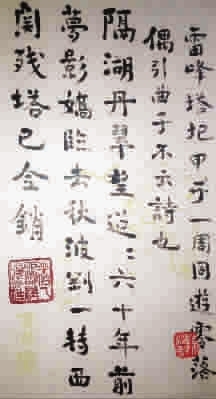 雷峰塔圮甲子一周同遊零落
偶引曲子不云詩也
隔湖丹翠望迢〻六十年前
夢影嬌臨去秋波那一轉西
関残塔已全銷